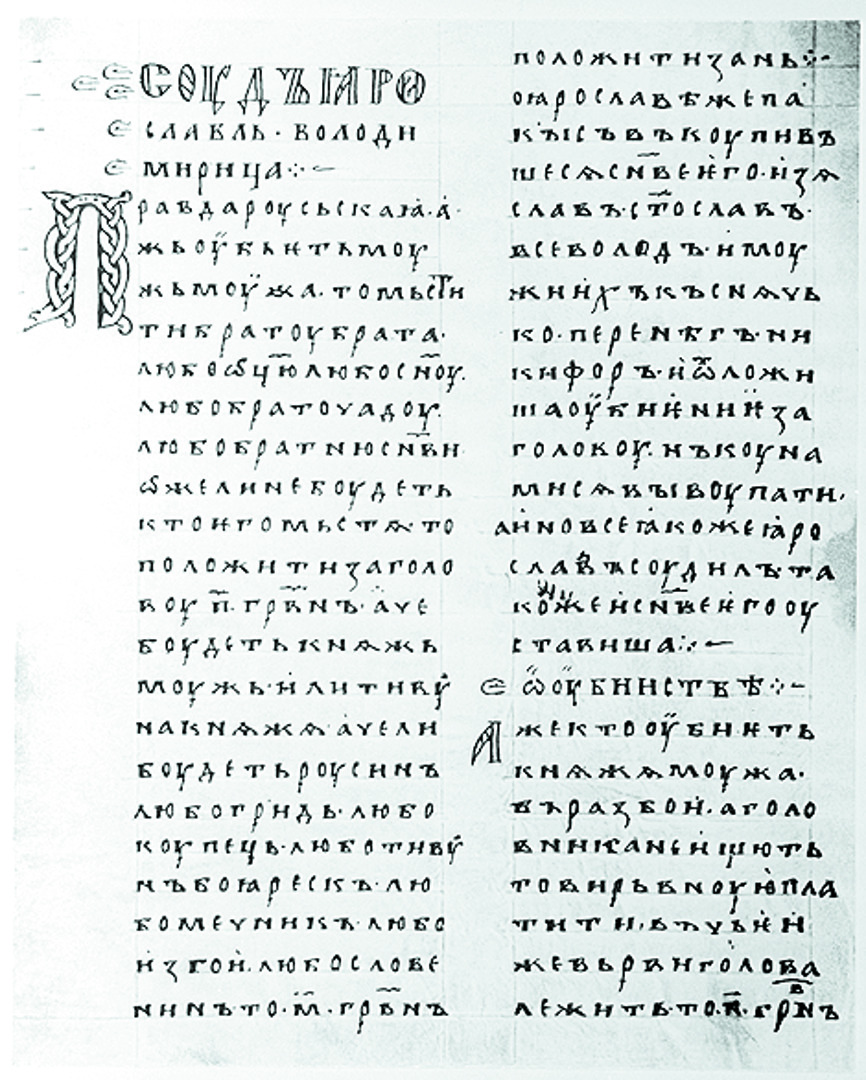 СОУДЪ ꙖРО
СЛАВЛЬ · ВОЛОДИ
МИРИЦА ⁘ –
Правда роусьскаꙗ · а
жь оубьѥть моу
жь моужа · то мьстити
ти братоу брата ·
любо ѿцю любо сн҃оу ·
любо братоучадоу ·
любо братню сн҃ви
ѡже ли не боудеть
кто ѥго мьстѧ то
положити за голо
воу · п҃ · грв҃нъ · аче
боудеть кнѧжь
моужь · или тивоу
на кнѧжѧ · аче ли
боудеть роусинъ
любо гридь · любо
коупець · любо тивоу
нъ боꙗрескъ · лю
бо мечникъ · любо
изгои · любо слове
нинъ то · м҃ · грв҃нъ
положити за нь ⁘ –
о ꙗрославѣ же па
кы съвъкоупивъ
шесѧ сн҃ве ѥго · изѧ
славъ · ст҃ославъ ·
всеволодъ · и моу
жи ихъ къснѧчь
ко · перенѣгъ · ни
кифоръ · и ѿложи
ша оубиѥниѥ за
голову · нъ коуна
ми сѧ выкоупати ·
а ино все ꙗкоже ꙗро
славъ соудилъ · та
коже и сн҃ве ѥго оу
ставиша ⁘ –
ѿ оубииствѣ ⁘ –
Аже кто оубиѥть
кнѧжѧ моужа ·
въ разбои · а голо
вника не ищють
то вирьвноую пла
тити · въ чьѥи
же вьрви голова
лежить то · п҃ · грв҃нъ